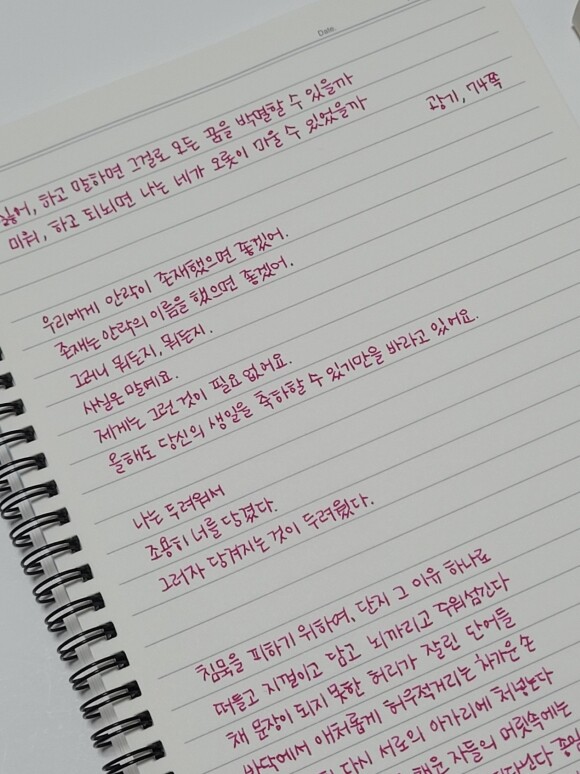 Date.
싫어, 하고 말하면 그걸로 모든 꿈을 박멸할 수 있을까
미워, 하고 되뇌면 나는 네가 오롯이 미울 수 있었을까
광기, 74쪽
우리에게 안락이 존재했으면 좋겠어.
존재는 안락의 이름을 했으면 좋겠어.
그러니 뭐든지, 뭐든지.
사실은 말예요.
제게는 그런 것이 필요 없어요.
올해도 당신의 생일을 축하할 수 있기만을 바라고 있어요.
나는 두려워서
조용히 너를 당겼다.
그러자 당겨지는 것이 두려웠다.
침묵을 피하기 위하여, 단지 그 이유 하나로
떠들고 지껄이고 담고 뇌까리고 주워섬긴다
채 문장이 되지 못한 허리가 잘린 단어들
바닥에서 애처롭게 허우적거리는 차가운 손
다시 서로의 아가리에 처넣는다
자들의 머릿속에는